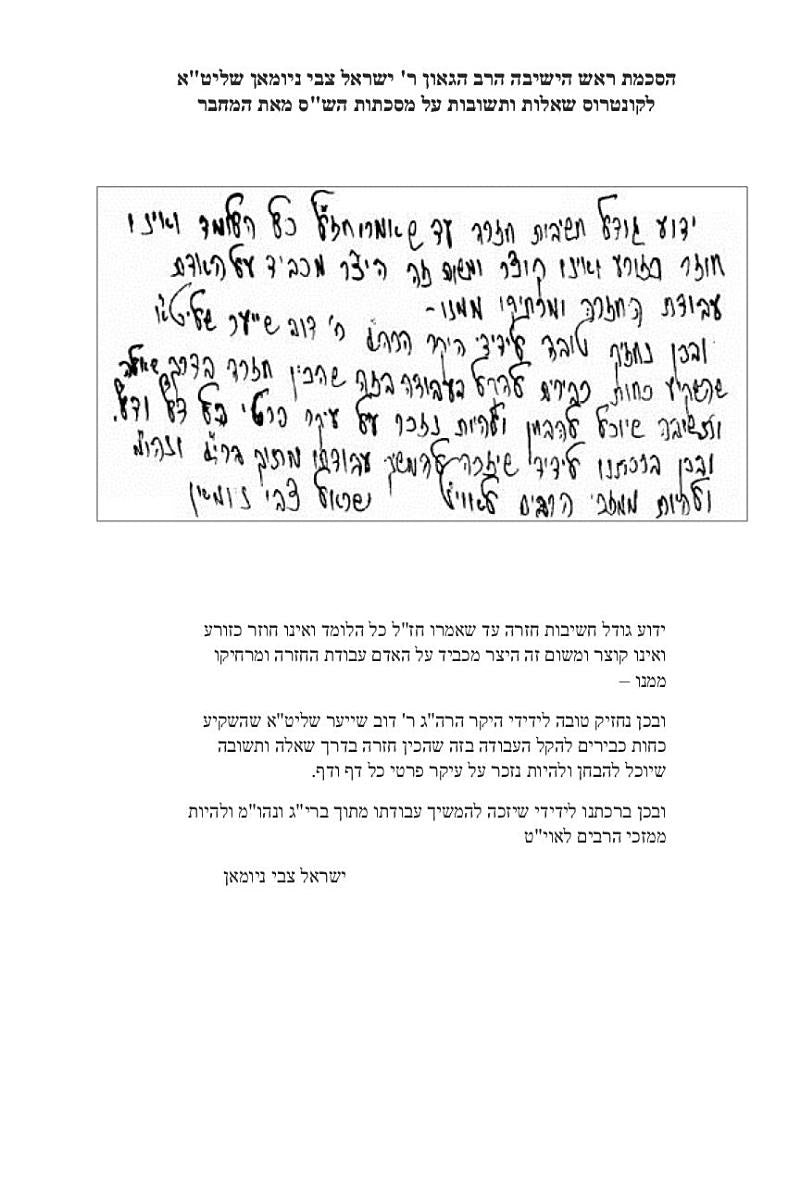 הסכמת ראש הישיבה הרב הגאון ר' ישראל צבי ניומאן שליט"א
לקונטרוס שאלות ותשובות על מסכתות הש"ס מאת המחבר
ידוע גודל חשיבות חזרה עד שאמרו חז"ל כל הלומד ואינו
חוזר כזורע ואינו קוצר ומשום זה היצר מכביד על האדם
עבודת החזרה ומרחיקו ממנו-
ובכן נחזיק טובה לידידי היקר הרה"ג ר' דוב שייער שליט"א
שהשקיע כחות כבירים להקל העבודה בזה שהכין חזרה בדרך שאלה
ותשובה שיוכל להבחן ולהיות נזכר על עיקר פרטי כל דף ודף.
ובכן ברכתנו לידידי שיזכה להמשיך עבודתו מתוך ברי"ג ונהו"מ
ולהיות ממזכי הרבים לאוי"ט ישראל צבי ניומאן
ידוע גודל חשיבות חזרה עד שאמרו חז"ל כל הלומד ואינו חוזר כזורע
ואינו קוצר ומשום זה היצר מכביד על האדם עבודת החזרה ומרחיקו
ממנו –
ובכן נחזיק טובה לידידי היקר הרה"ג ר' דוב שייער שליט"א שהשקיע
כחות כבירים להקל העבודה בזה שהכין חזרה בדרך שאלה ותשובה
שיוכל להבחן ולהיות נזכר על עיקר פרטי כל דף ודף.
ובכן ברכתנו לידידי שיזכה להמשיך עבודתו מתוך ברי"ג ונהו"מ ולהיות
ממזכי הרבים לאוי"ט
ישראל צבי ניומאן